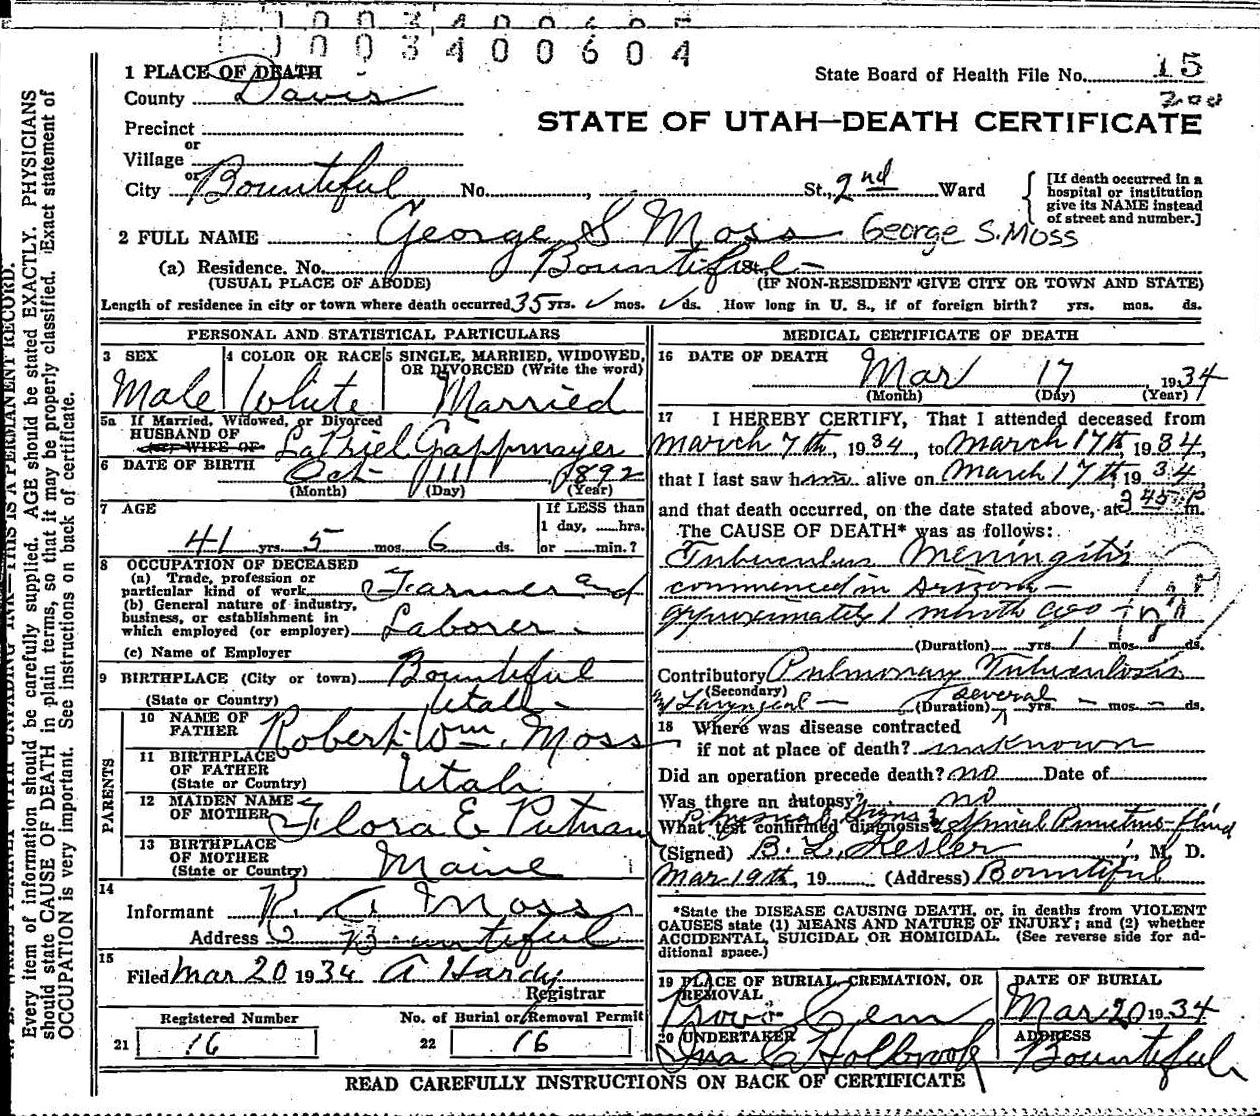 1003400604
State Board of Health File No. 15
1 PLACE OF DEATH
County Davis
STATE OF UTAH—DEATH CERTIFICATE
Precinct
or
Village
or
City Bountiful No. , St., 2nd Ward
[If death occurred in a hospital or institution give its NAME instead of street and number.]
2 FULL NAME George S Moss George S. Moss
(a) Residence. No. Bountiful
(USUAL PLACE OF ABODE) (IF NON-RESIDENT GIVE CITY OR TOWN AND STATE)
Length of residence in city or town where death occurred 35 yrs. mos. ds. How long in U. S., if of foreign birth? yrs. mos. ds.
PERSONAL AND STATISTICAL PARTICULARS
3 SEX Male
4 COLOR OR RACE White
5 SINGLE, MARRIED, WIDOWED, OR DIVORCED (Write the word) Married
5a If Married, Widowed, or Divorced
HUSBAND OF
(or) WIFE OF LaPriel Gappmayer
6 DATE OF BIRTH Oct 11 1892
(Month) (Day) (Year)
7 AGE 41 yrs. 5 mos. 6 ds.
If LESS than 1 day, hrs. or min.?
8 OCCUPATION OF DECEASED
(a) Trade, profession or particular kind of work Farmer and
(b) General nature of industry, business, or establishment in which employed (or employer) Laborer
(c) Name of Employer
9 BIRTHPLACE (City or town) Bountiful
(State or Country) Utah
PARENTS
10 NAME OF FATHER Robert Wm. Moss
11 BIRTHPLACE OF FATHER (State or Country) Utah
12 MAIDEN NAME OF MOTHER Flora E Putnam
13 BIRTHPLACE OF MOTHER (State or Country) Maine
14
Informant R. A Moss
Address Bountiful
15
Filed Mar 20 1934 A Hardy
Registrar
Registered Number
21 16
No. of Burial or Removal Permit
22 16
MEDICAL CERTIFICATE OF DEATH
16 DATE OF DEATH Mar 17, 1934
(Month) (Day) (Year)
17 I HEREBY CERTIFY, That I attended deceased from
March 7th, 1934, to March 17th, 1934,
that I last saw him alive on March 17th, 1934,
and that death occurred, on the date stated above, at 3 45 P m.
The CAUSE OF DEATH* was as follows:
Tubercular Meningitis
commenced in Arizona —
approximately 1 month ago
(Duration) yrs. 1 mos. ds.
Contributory Pulmonary Tuberculosis
(Secondary)
Laryngeal — (Duration) several yrs. — mos. — ds.
18 Where was disease contracted
if not at place of death? unknown
Did an operation precede death? no Date of
Was there an autopsy? no
What test confirmed diagnosis? Physical Signs & Spinal Puncture-fluid
(Signed) B. L. Kesler, M. D.
Mar 19th, 19 (Address) Bountiful
*State the DISEASE CAUSING DEATH, or, in deaths from VIOLENT
CAUSES state (1) MEANS AND NATURE OF INJURY; and (2) whether
ACCIDENTAL, SUICIDAL OR HOMICIDAL. (See reverse side for ad-
ditional space.)
19 PLACE OF BURIAL, CREMATION, OR REMOVAL
Provo Cem
DATE OF BURIAL
Mar 20 1934
20 UNDERTAKER
Ina C Holbrook
ADDRESS
Bountiful
READ CAREFULLY INSTRUCTIONS ON BACK OF CERTIFICATE
THIS IS A PERMANENT RECORD.
Every item of information should be carefully supplied. AGE should be stated EXACTLY. PHYSICIANS
should state CAUSE OF DEATH in plain terms, so that it may be properly classified. Exact statement of
OCCUPATION is very important. See instructions on back of certificate.